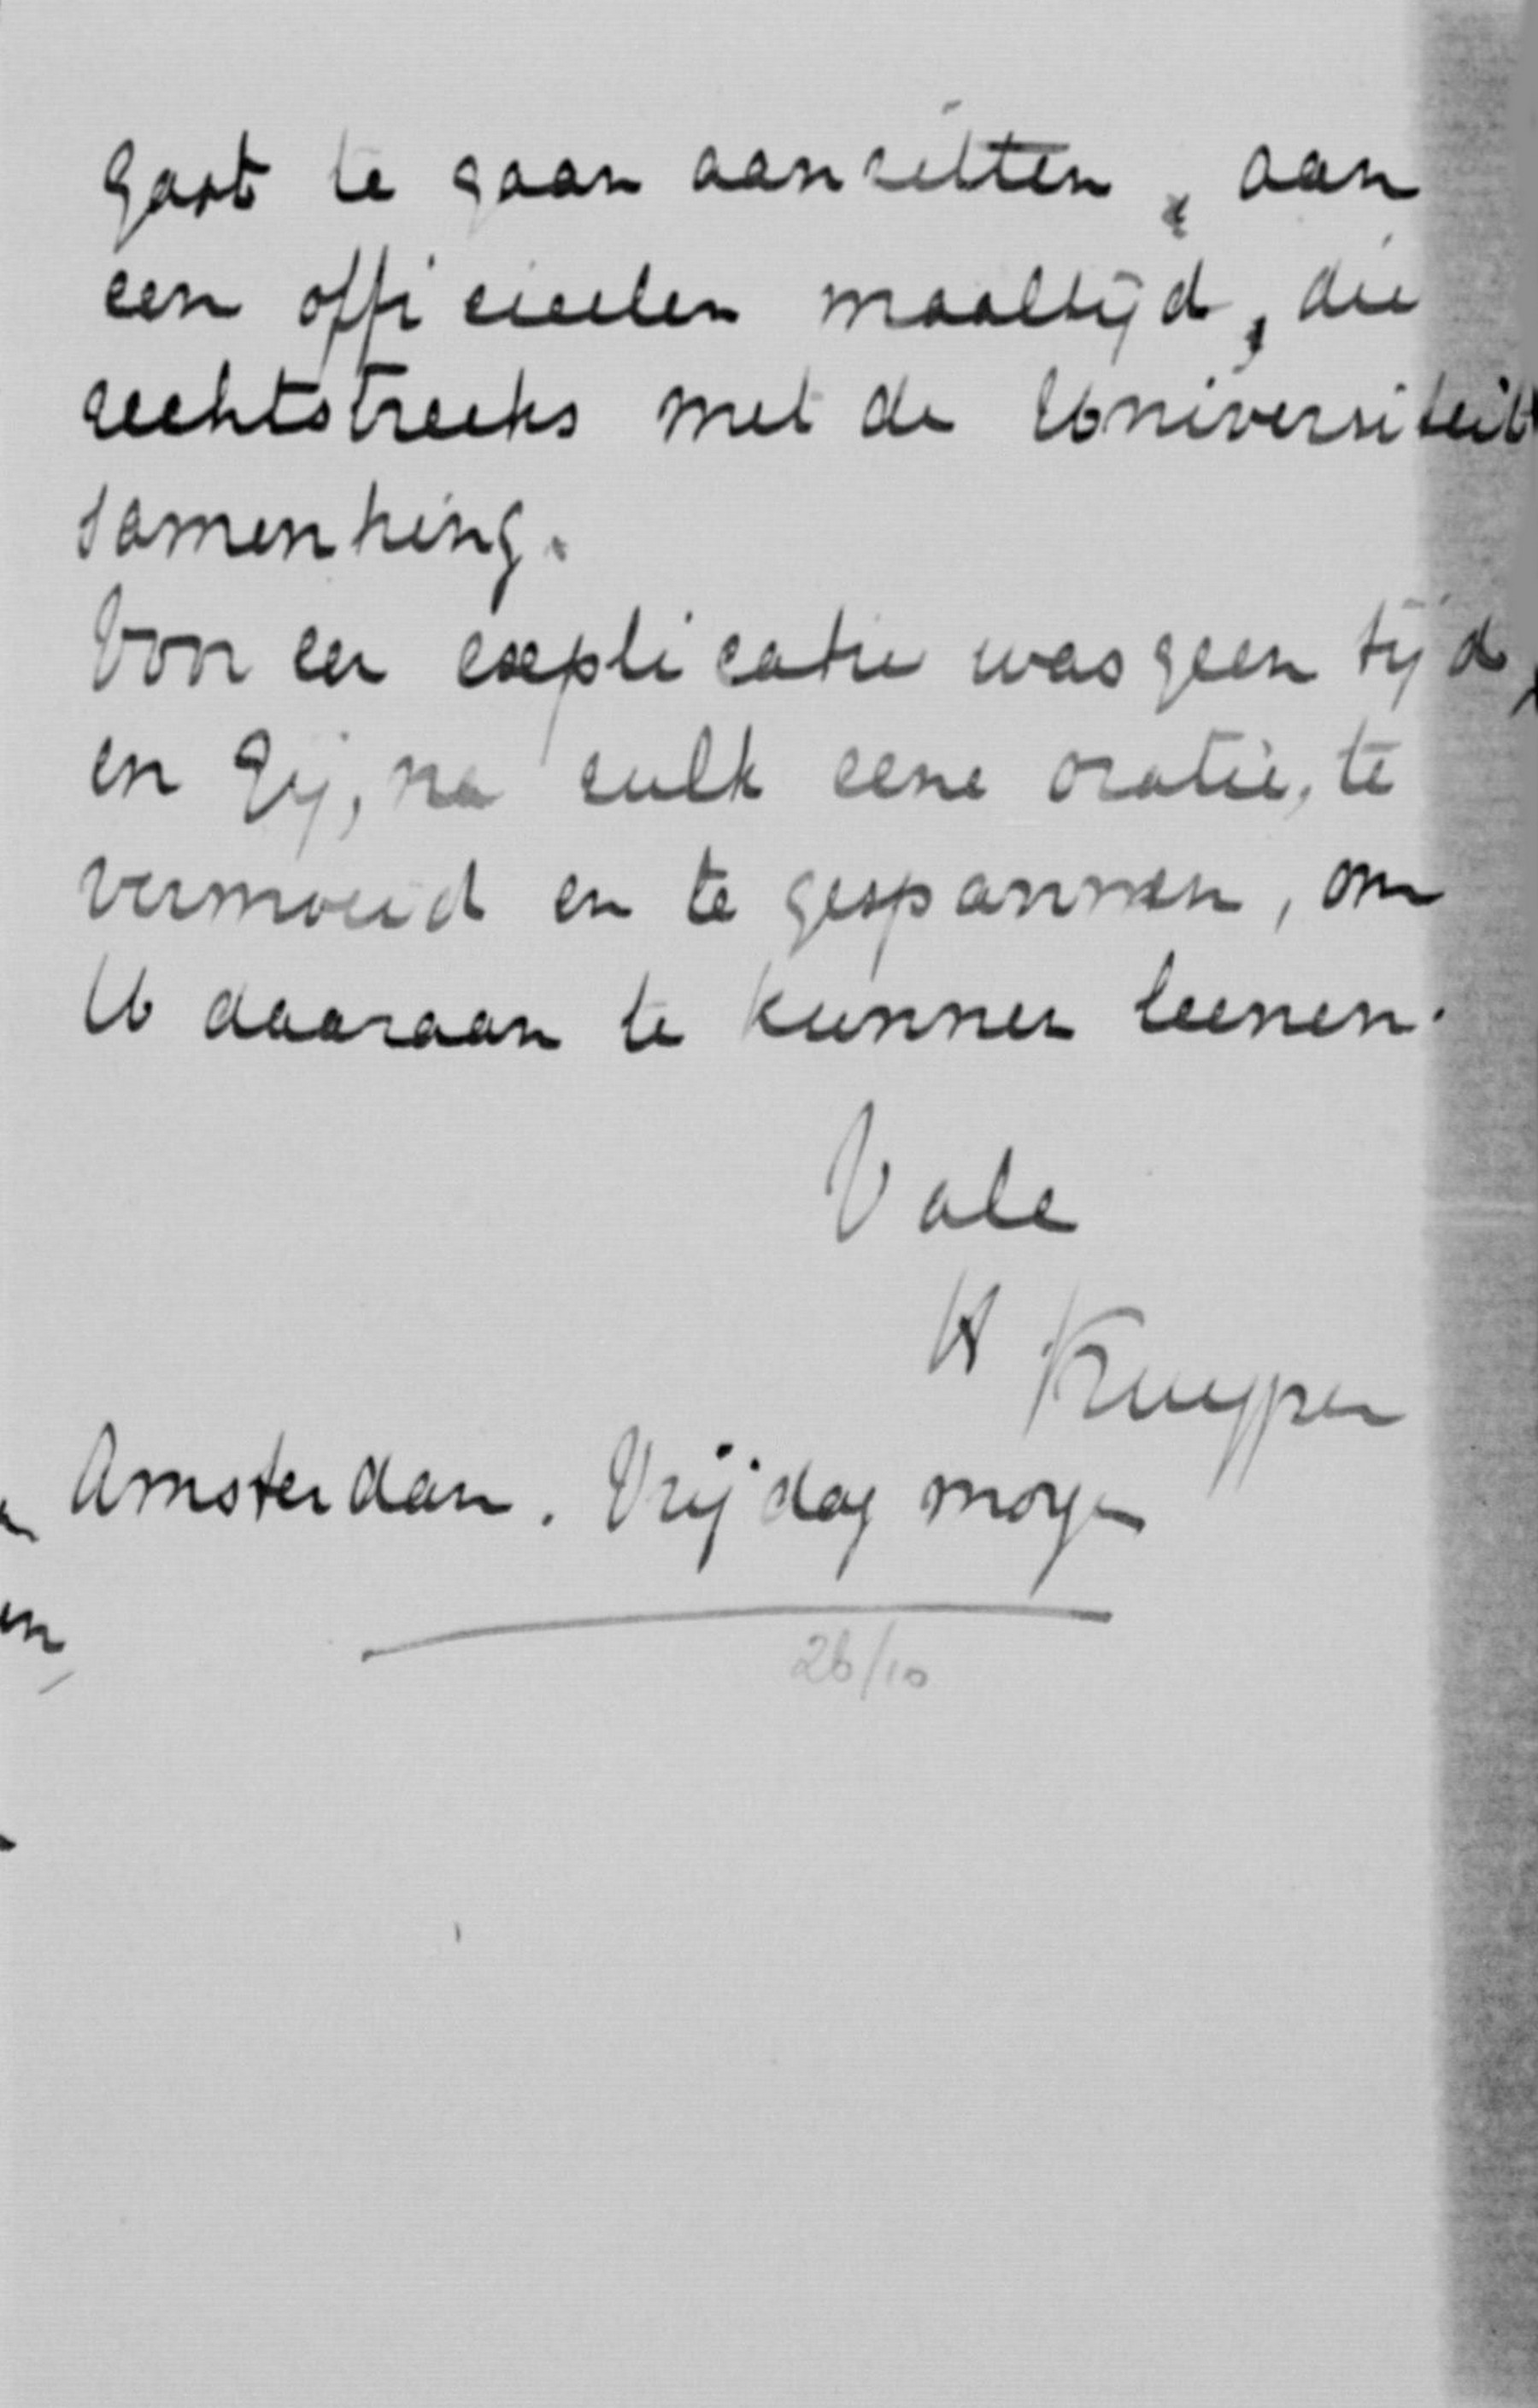 gast te gaan aanzitten, aan
een officieelen maaltijd, die
rechtstreeks met de Universiteit
samenhing.
Voor een explicatie was geen tijd,
en Gij, na zulk eene oratie, te
vermoeid en te gespannen, om
U daaraan te kunnen leenen.
Vale
Kuyper
Amsterdam. Vrijdag morgen
26/10